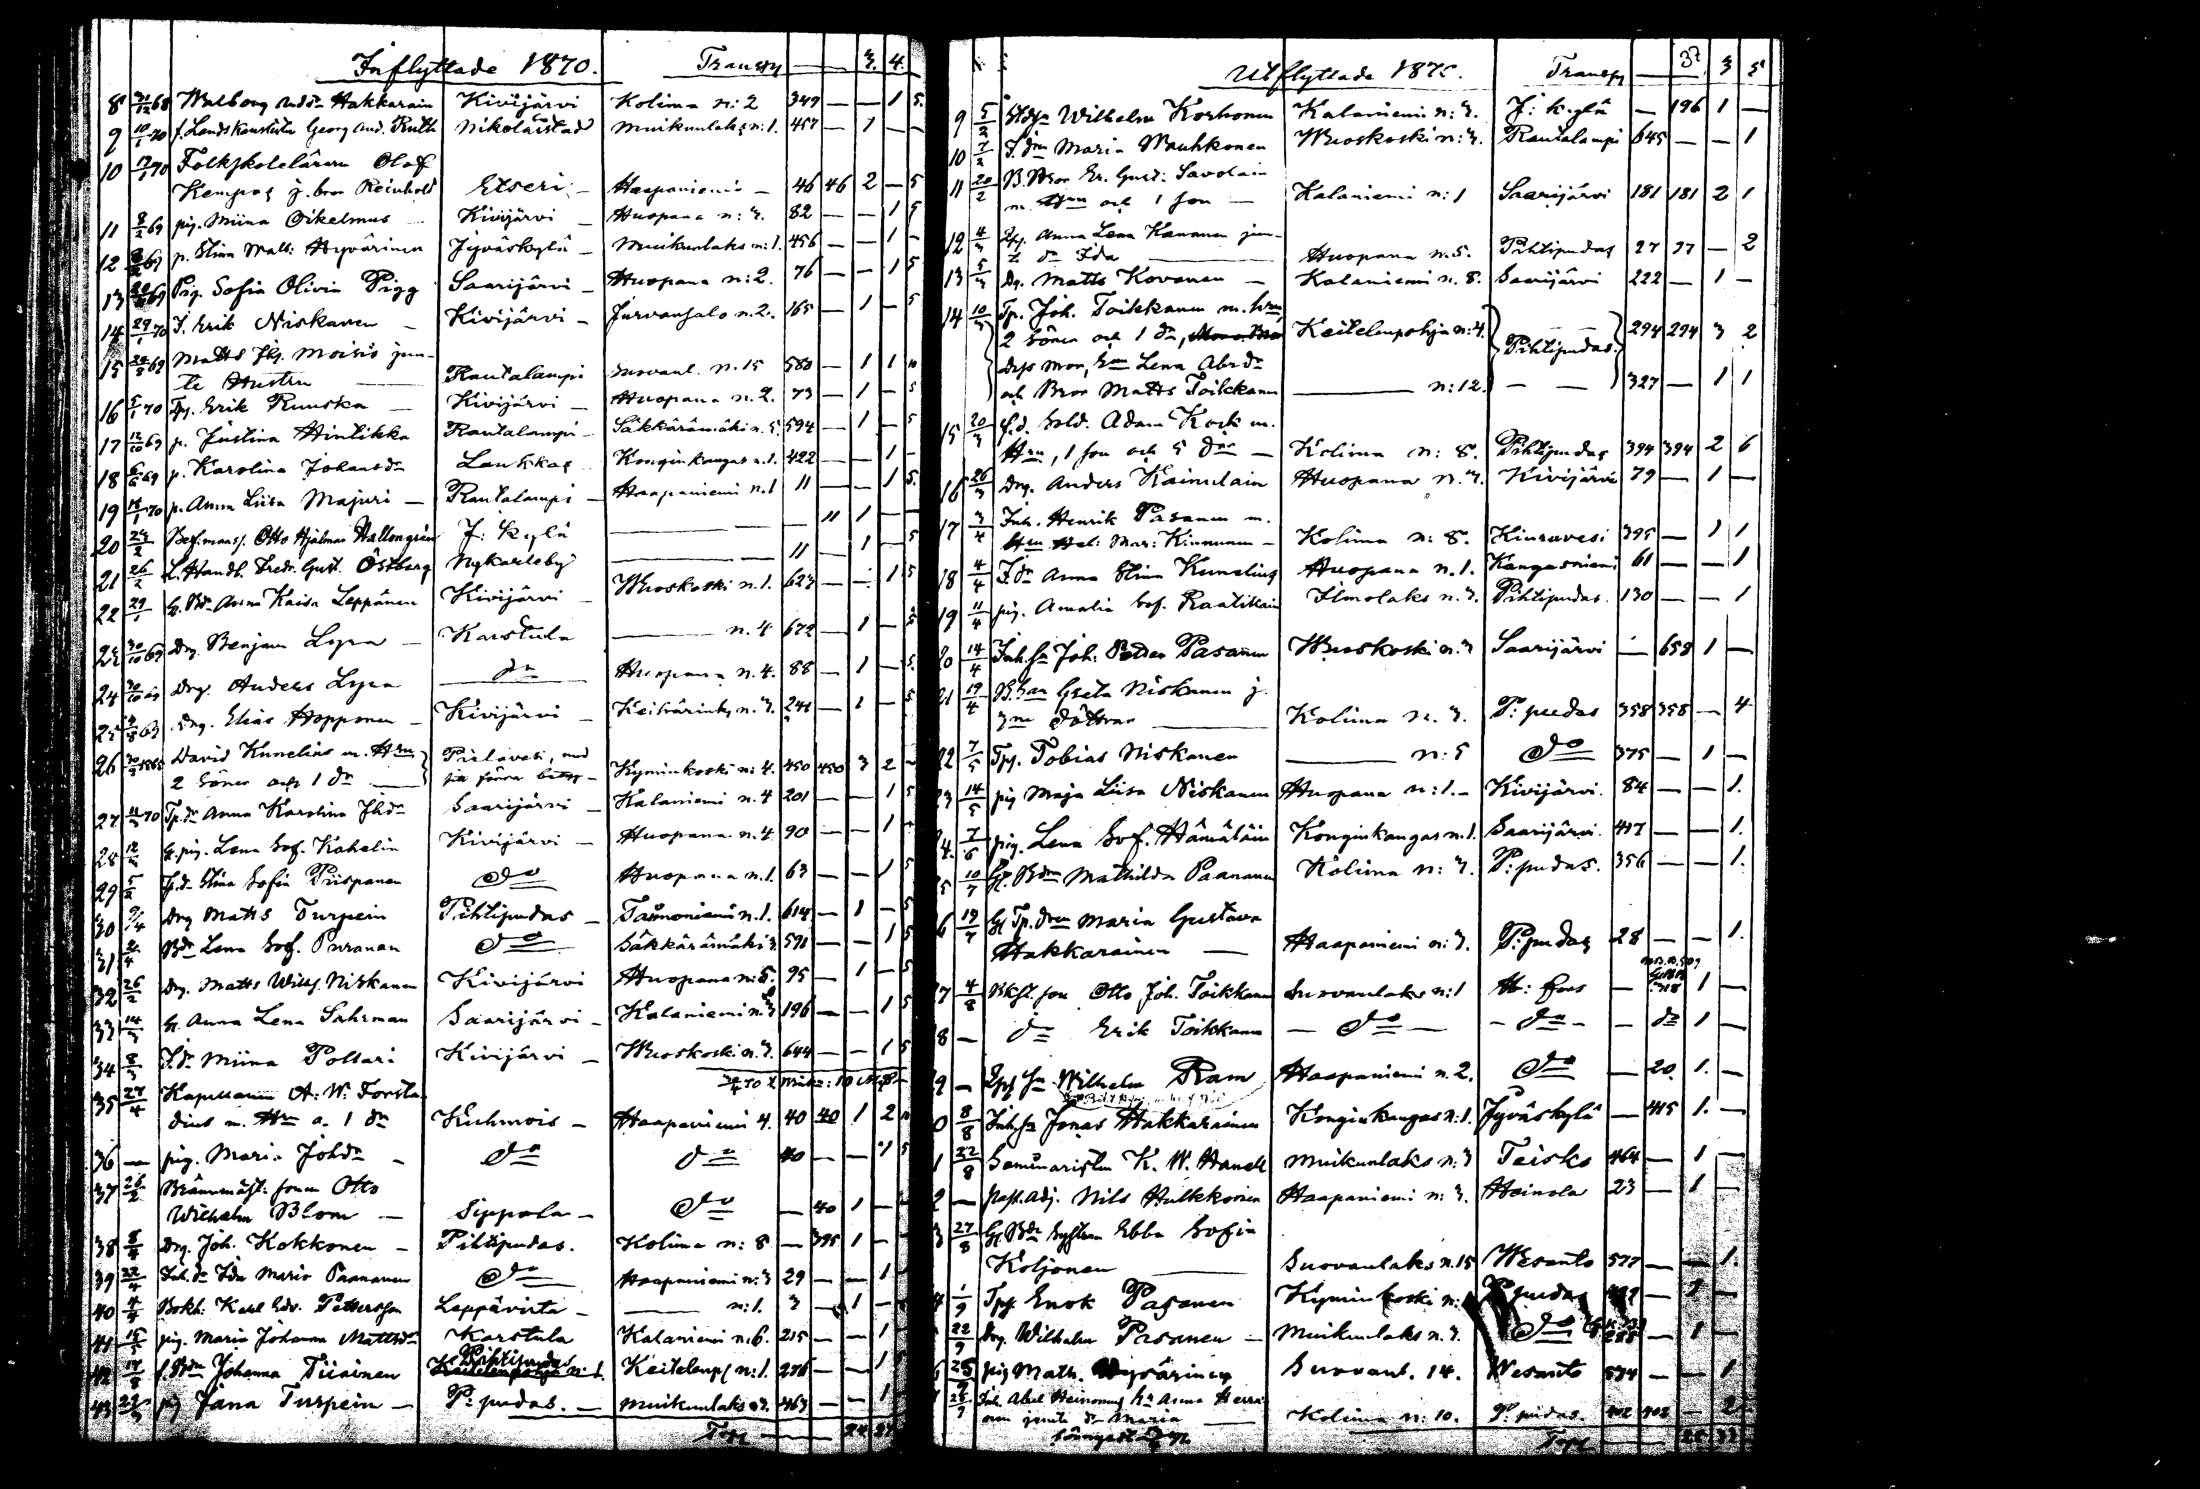 Inflyttade 1870. Transp — 3. 4.
8 31/12 68 Walborg Andsdr Hakkarain Kivijärvi Kolima n: 2 349 — — 1 5.
9 10/1 70 f. Landskanslisten Georg And. Ruth Nikolaistad Muikunlaks n: 1. 457 — 1 — —
10 /1 70 Folkskoleläraren Olof
Kempas j. bror Reinhold Etseri — Haapaniemi — 46 46 2 — 5
11 8/2 69 pig. Miina Oikelmus Kivijärvi — Huopana n: 3. 82 — — 1 5
12 69 p. Stina Matt: Hyvärinen Jyväskylä — Muikunlaks n: 1. 456 — — 1 -
13 69 Pig. Sofia Olivia Pigg Saarijärvi — Huopana n: 2. 76 — — 1 5
14 29/1 70 I. Erik Niskanen — Kivijärvi — Jurvansalo n. 2. 165 — 1 — 5
15 69 Matts Joh. Moisio jem-
te Hustru — Rautalampi Suovanl. n. 15 580 — 1 1 10
16 5/1 70 Erik Ruuska — Kivijärvi — Huopana n. 2. 73 — 1 — 5
17 12/10 69 p. Justina Hintikka Rautalampi — Säkkärämäki n. 5. 594 — 1 — 5
18 6/6 69 p. Karolina Johansdr Laukkas Konginkangas n. 1. 422 — — 1 -
19 14/1 70 p. Anna Liisa Majuri — Rautalampi — Haapaniemi n. 1 11 — — 1 5.
20 24/2 Otto Hjalmar Hallongrén J: kylä — — 11 1 — -
21 26/2 L. Handl. Fredr. Gust. Östberg Nykarleby — 11 — 1 — 5
22 29/1 G. Bdr Anna Kaisa Leppänen Kivijärvi — Wuoskoski n. 1. 623 — — 1 5
23 30/10 69 Drg. Benjam Lyra — Karstula — n. 4 672 — 1 — 5
24 30/10 69 Drg. Anders Lyra do Huopana n. 4. 88 — 1 — 5.
25 63 Drg. Elias Hopponen — Kivijärvi — Keihärinky n. 3. 241 — 1 — 5
26 30/9 1865 David Kunelius m. Hru
2 Söner och 1 dr — Pielavesi, med — Kyminkoski n: 4. 450 450 3 2 -
27 11/3 70 Tp. dr Anna Karolina Jhdr Saarijärvi — Kalaniemi n. 4 201 — — 1 5
28 12/3 G. pig. Lena Sof. Kahelin Kivijärvi — Huopana n. 4 90 — — 1
29 5/2 Tp. dr Stina Sofia Piispanen do Huopana n. 1. 63 — — 1 5
30 9/4 Drg Matts Turpein Pihtipudas — Taimoniemi n. 1. 614 — 1 — 5
31 2/4 Bdr Lena Sof. Puranen do Säkkärämäki 3 591 — — 1 5
32 26/2 Drg. Matts Wilh. Niskanen Kivijärvi Huopana n: 5. 95 — 1 — 5
33 14/3 G. Anna Lena Sahrman Saarijärvi — Kalaniemi n. 3 196 — — 1 5
34 8/3 I. dr Miina Pollari Kivijärvi — Wuoskoski n. 3. 644 — — 1 5
35 27/4 Kapellanen A. W. Forsta
dius m. Hru o. 1 dr Kuhmois — Haapaniemi 4. 40 40 1 2
36 — pig. Maria Johdr — do do 40 — — 1 5
37 26/2 Brännmäst. sonen Otto
Wilhelm Blom — Sippola — do — 40 1 — -
38 8/4 Drg. Joh. Kokkonen — Pihtipudas. Kolima n: 8 — 395 1 — -
39 22/4 Inh. dr Ida Maria Paananen do Haapaniemi n: 3 29 — — 1 -
40 4/4 Bokh: Karl Edv. Pettersson Leppävirta — — n: 1. 3 — 1 —
41 15/5 pig. Maria Johanna Mattsdr Karstula Kalaniemi n: 6. 215 — — 1 -
42 14/8 f. Bdr Johanna Tiiainen Pihtipudas Keitelenp n: 1. 276 — — 1 5
43 pig Jana Turpein — P: pudas. — Muikunlaks n: 3. 463 — — 1 -
Tspt — 22 27
Utflyttade 187 . Transp — 37 3 5
9 5/2 Wilhelm Korhonen Kalaniemi n: 3. J: kylä — 196 1 —
10 7/2 I. drn Maria Wauhkonen Wuoskoski n: 3. Rautalampi 645 — — 1
11 20/2 B. Bror Er. Gust: Savolain
m. Hru och 1 son — Kalaniemi n: 1 Saarijärvi 181 181 2 1
12 4/3 Anna Lena Kananen jem-
te dr Ida — Huopana n. 5. Pihtipudas 27 27 — 2
13 5/3 Dr. Matts Kovanen — Kalaniemi n. 8. Saarijärvi 222 — 1 —
14 10/3 Tp. Joh. Toikkanen m. hru,
2 Söner och 1 dr, Keitelenpohja n: 4. Pihtipudas 294 294 3 2
deys mor, Lena Abrdr
och Bror Matts Toikkanen — n: 12. — — 327 — 1 1
15 20/3 f. d. Sold. Adam Koski m.
Hru, 1 son och 5 drar — Kolima n: 8. Pihtipudas 394 394 2 6
16 26/3 Drg. Anders Kainulain Huopana n. 3. Kivijärvi 79 — 1 —
17 3/4 Inh. Henrik Pasanen m.
Hru Hel: Mar: Kinnunen — Kolima n: 8. Kiuruvesi 395 — 1 1
18 4/4 I. dr Anna Stina Kunelius Huopana n. 1. Kangasniemi 61 — — 1
19 11/4 pig. Amalia Sof. Raatikain Ilmolaks n. 3. Pihtipudas. 130 — — 1
20 14/4 Inh. Sn Joh: Petter Pasanen Wuoskoski n. 3 Saarijärvi — 658 1 —
21 19/4 Greta Niskanen j.
3ne döttrar — Kolima n. 3. P: pudas 358 358 — 4
22 7/5 Tpf. Tobias Niskanen — n: 5 do 375 — 1 —
23 14/5 pig Maja Liisa Niskanen Huopana n: 1. — Kivijärvi. 84 — — 1.
24. 7/6 pig. Lena Sof. Hämäläin Konginkangas n. 1. Saarijärvi. 417 — — 1.
25 10/7 G. Bdrn Mathilda Paananen Kolima n: 3. P: pudas. 356 — — 1.
26 19/7 G Tp. drn Maria Gustava
Hakkarainen — Haapaniemi n: 3. P: pudas 28 — — 1.
27 4/8 son Otto Joh. Toikkanen Suovanlaks n: 1 H: fors — 1 —
28 — do Erik Toikkanen — do — — do — — do 1 —
29 — Wilhelm Pram Haapaniemi n. 2. do — 20. 1. —
30 8/8 Inh. sn Jonas Hakkarainen Konginkangas n: 1. Jyväskylä — 415 1. —
31 22/8 Seminaristen K. W. Hanell Muikunlaks n: 3 Teisko 464 — 1 —
32 — past. adj. Nils Hulkkonen Haapaniemi n: 3. Heinola 23 — 1 —
33 27/8 G. Bdr Systern Ebba Sofia
Koljonen — Suovanlaks n. 15 Wesanto 577 — — 1.
1/9 Tpf. Enok Pasanen Kyminkoski n: P: pudas — 1 —
22/9 Drg. Wilhelm Pasanen — Muikunlaks n. 3. do — 1 —
25/9 pig Math. Hyvärinen Suovanl. 14. Wesanto 574 — — 1
Inh. Abel Heinonens hu Anna Herra
nen jemte dr Maria — Kolima n: 10. P: pudas. 402 402 — 2
Tspt —